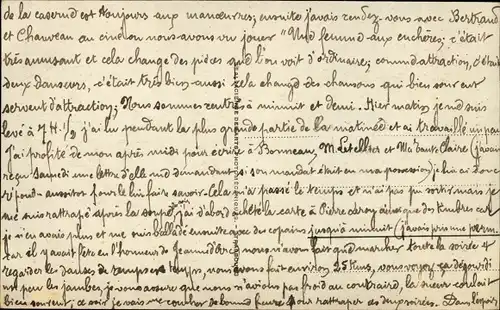 de la caserne est toujours aux manœuvres; ensuite j'avais rendez-vous avec Bertrand
et Chauveau au cinéma nous avons vu jouer "Une femme aux enchères; c'était
très amusant et cela change des pièces que l'on voit d'ordinaire; comme attraction, c'était
deux danseurs, c'était très bien aussi cela change des chansons qui bien souvent
servent d'attraction; Nous sommes rentrés à minuit et demi. Hier matin je me suis
levé à 7 H. 1/2 j'ai lu pendant la plus grande partie de la matinée et ai travaillé un peu
J'ai profité de mon après midi pour écrire à Bonneau, M. Letellier et Ma Dame Claire (j'avais
reçu Samedi une lettre d'elle me demandant si son mandat était en ma possession) je lui ai donc
répondu aussitôt pour le lui faire savoir. Cela m'a passé le temps et n'ai pas pu sortir mais je
me suis rattrapé après la soupe, j'ai d'abord acheté la carte à Pierre Leroy ainsi que des timbres car
je n'en avais plus et me suis balladé ensuite avec des copains jusqu'à minuit (j'avais pris une perm
car il y avait fête en l'honneur de Jeanne d'Arc nous n'avons fait que marcher toute la soirée et
regarder les danses de temps en temps, nous avons fait environ 25 Kms, vous voyez ça dégourdi
un peu les jambes, je vous assure que nous n'avions pas froid au contraire, la sueur coulait
bien souvent, ce soir je vais me coucher de bonne heure pour rattraper ces deux soirées. Dans l'espoir